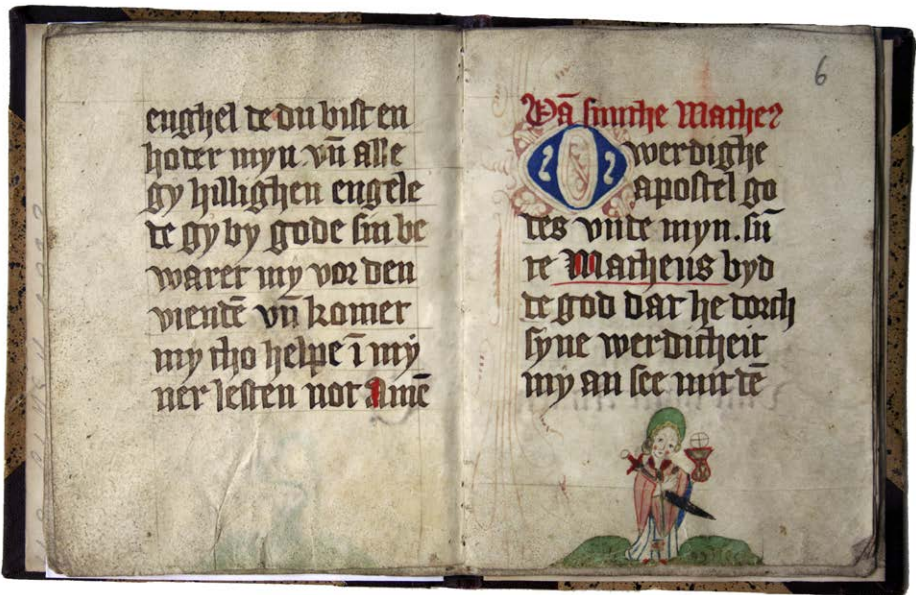 enghel de du bist en
hoder myn vn̄ alle
gy hillighen engele
de gy by gode sin be
waret my vor den
viendē vn̄ komet
my tho helpe ī my
ner lesten not Amē
6
Uā sunthe Mathe
O werdighe
apostel go
des vnde myn. sū
te Matheus byd
de god dat he dorch
syne werdicheit
my an see mit dē